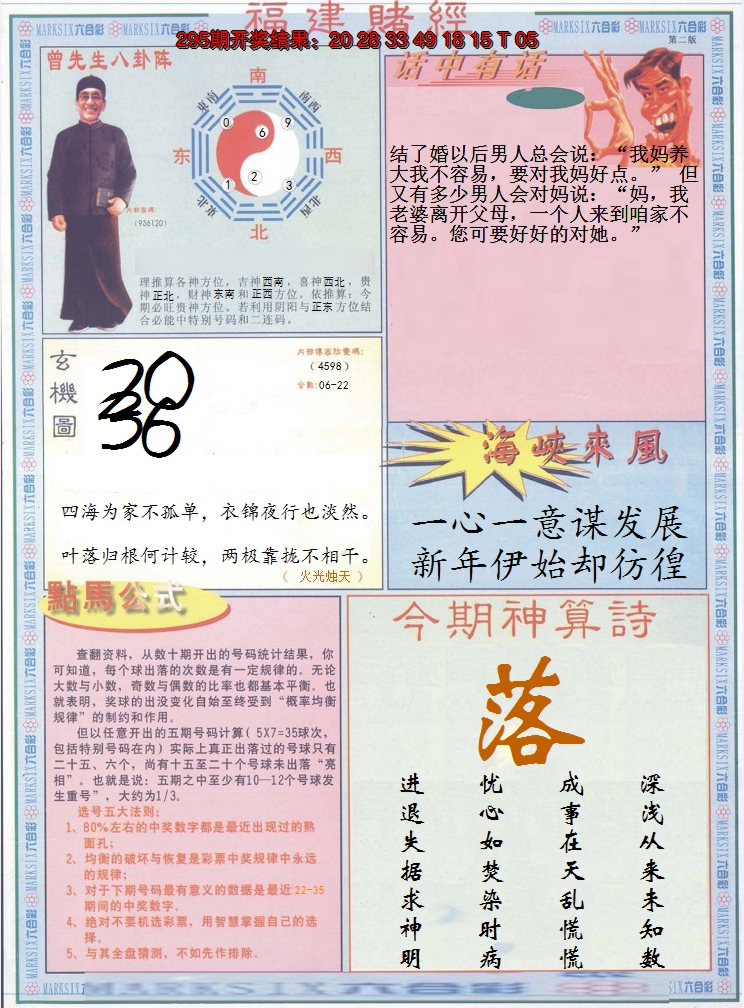 福建賭經
295期开奖结果：20 28 33 49 18 15 T 05
第二版
MARKSIX六合彩
曾先生八卦阵
南
东南
西南
东
西
东北
西北
北
0
6
9
1
2
3
内部密碼:
(936120)
理推算各神方位，吉神西南，喜神西北，贵
神正北，财神东南和正西方位。依推算：今
期必旺贵神方位。若利用阴阳与正东方位结
合必能中特别号码和二连码。
话中有话
结了婚以后男人总会说：“我妈养
大我不容易，要对我妈好点。” 但
又有多少男人会对妈说：“妈，我
老婆离开父母，一个人来到咱家不
容易。您可要好好的对她。”
玄機圖
内部傳密防變碼:
(4598)
合数:06-22
20
36
四海为家不孤单，衣锦夜行也淡然。
叶落归根何计较，两极靠拢不相干。
（ 火光烛天 ）
海峽來風
一心一意谋发展
新年伊始却彷徨
點馬公式
查翻资料，从数十期开出的号码统计结果，你
可知道，每个球出落的次数是有一定规律的。无论
大数与小数，奇数与偶数的比率也都基本平衡。也
就表明，奖球的出没变化自始至终受到“概率均衡
规律”的制约和作用。
但以任意开出的五期号码计算( 5X7=35球次，
包括特别号码在内) 实际上真正出落过的号球只有
二十五、六个，尚有十五至二十个号球未出落“亮
相”。也就是说：五期之中至少有10—12个号球发
生重号”，大约为1/3。
选号五大法则：
1、80%左右的中奖数字都是最近出现过的熟
面孔；
2、均衡的破坏与恢复是彩票中奖规律中永远
的规律；
3、对于下期号码最有意义的数据是最近22-35
期间的中奖数字。
4、绝对不要机选彩票，用智慧掌握自己的选
择。
5、与其全盘猜测，不如先作排除。
今期神算詩
落
深浅从来未知数
成事在天乱慌慌
忧心如焚染时病
进退失据求神明